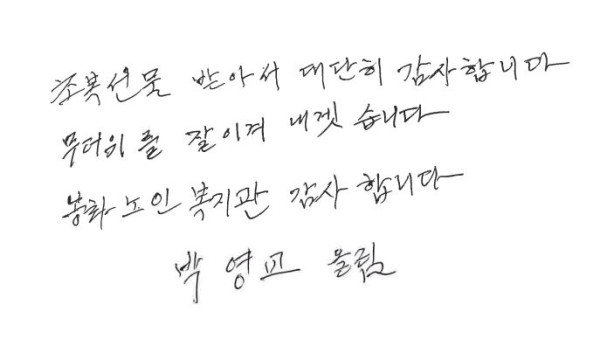 초복선물 받아서 대단히 감사합니다
무더위를 잘이겨 내겟습니다
봉화노인복지관 감사합니다
박영교 올림